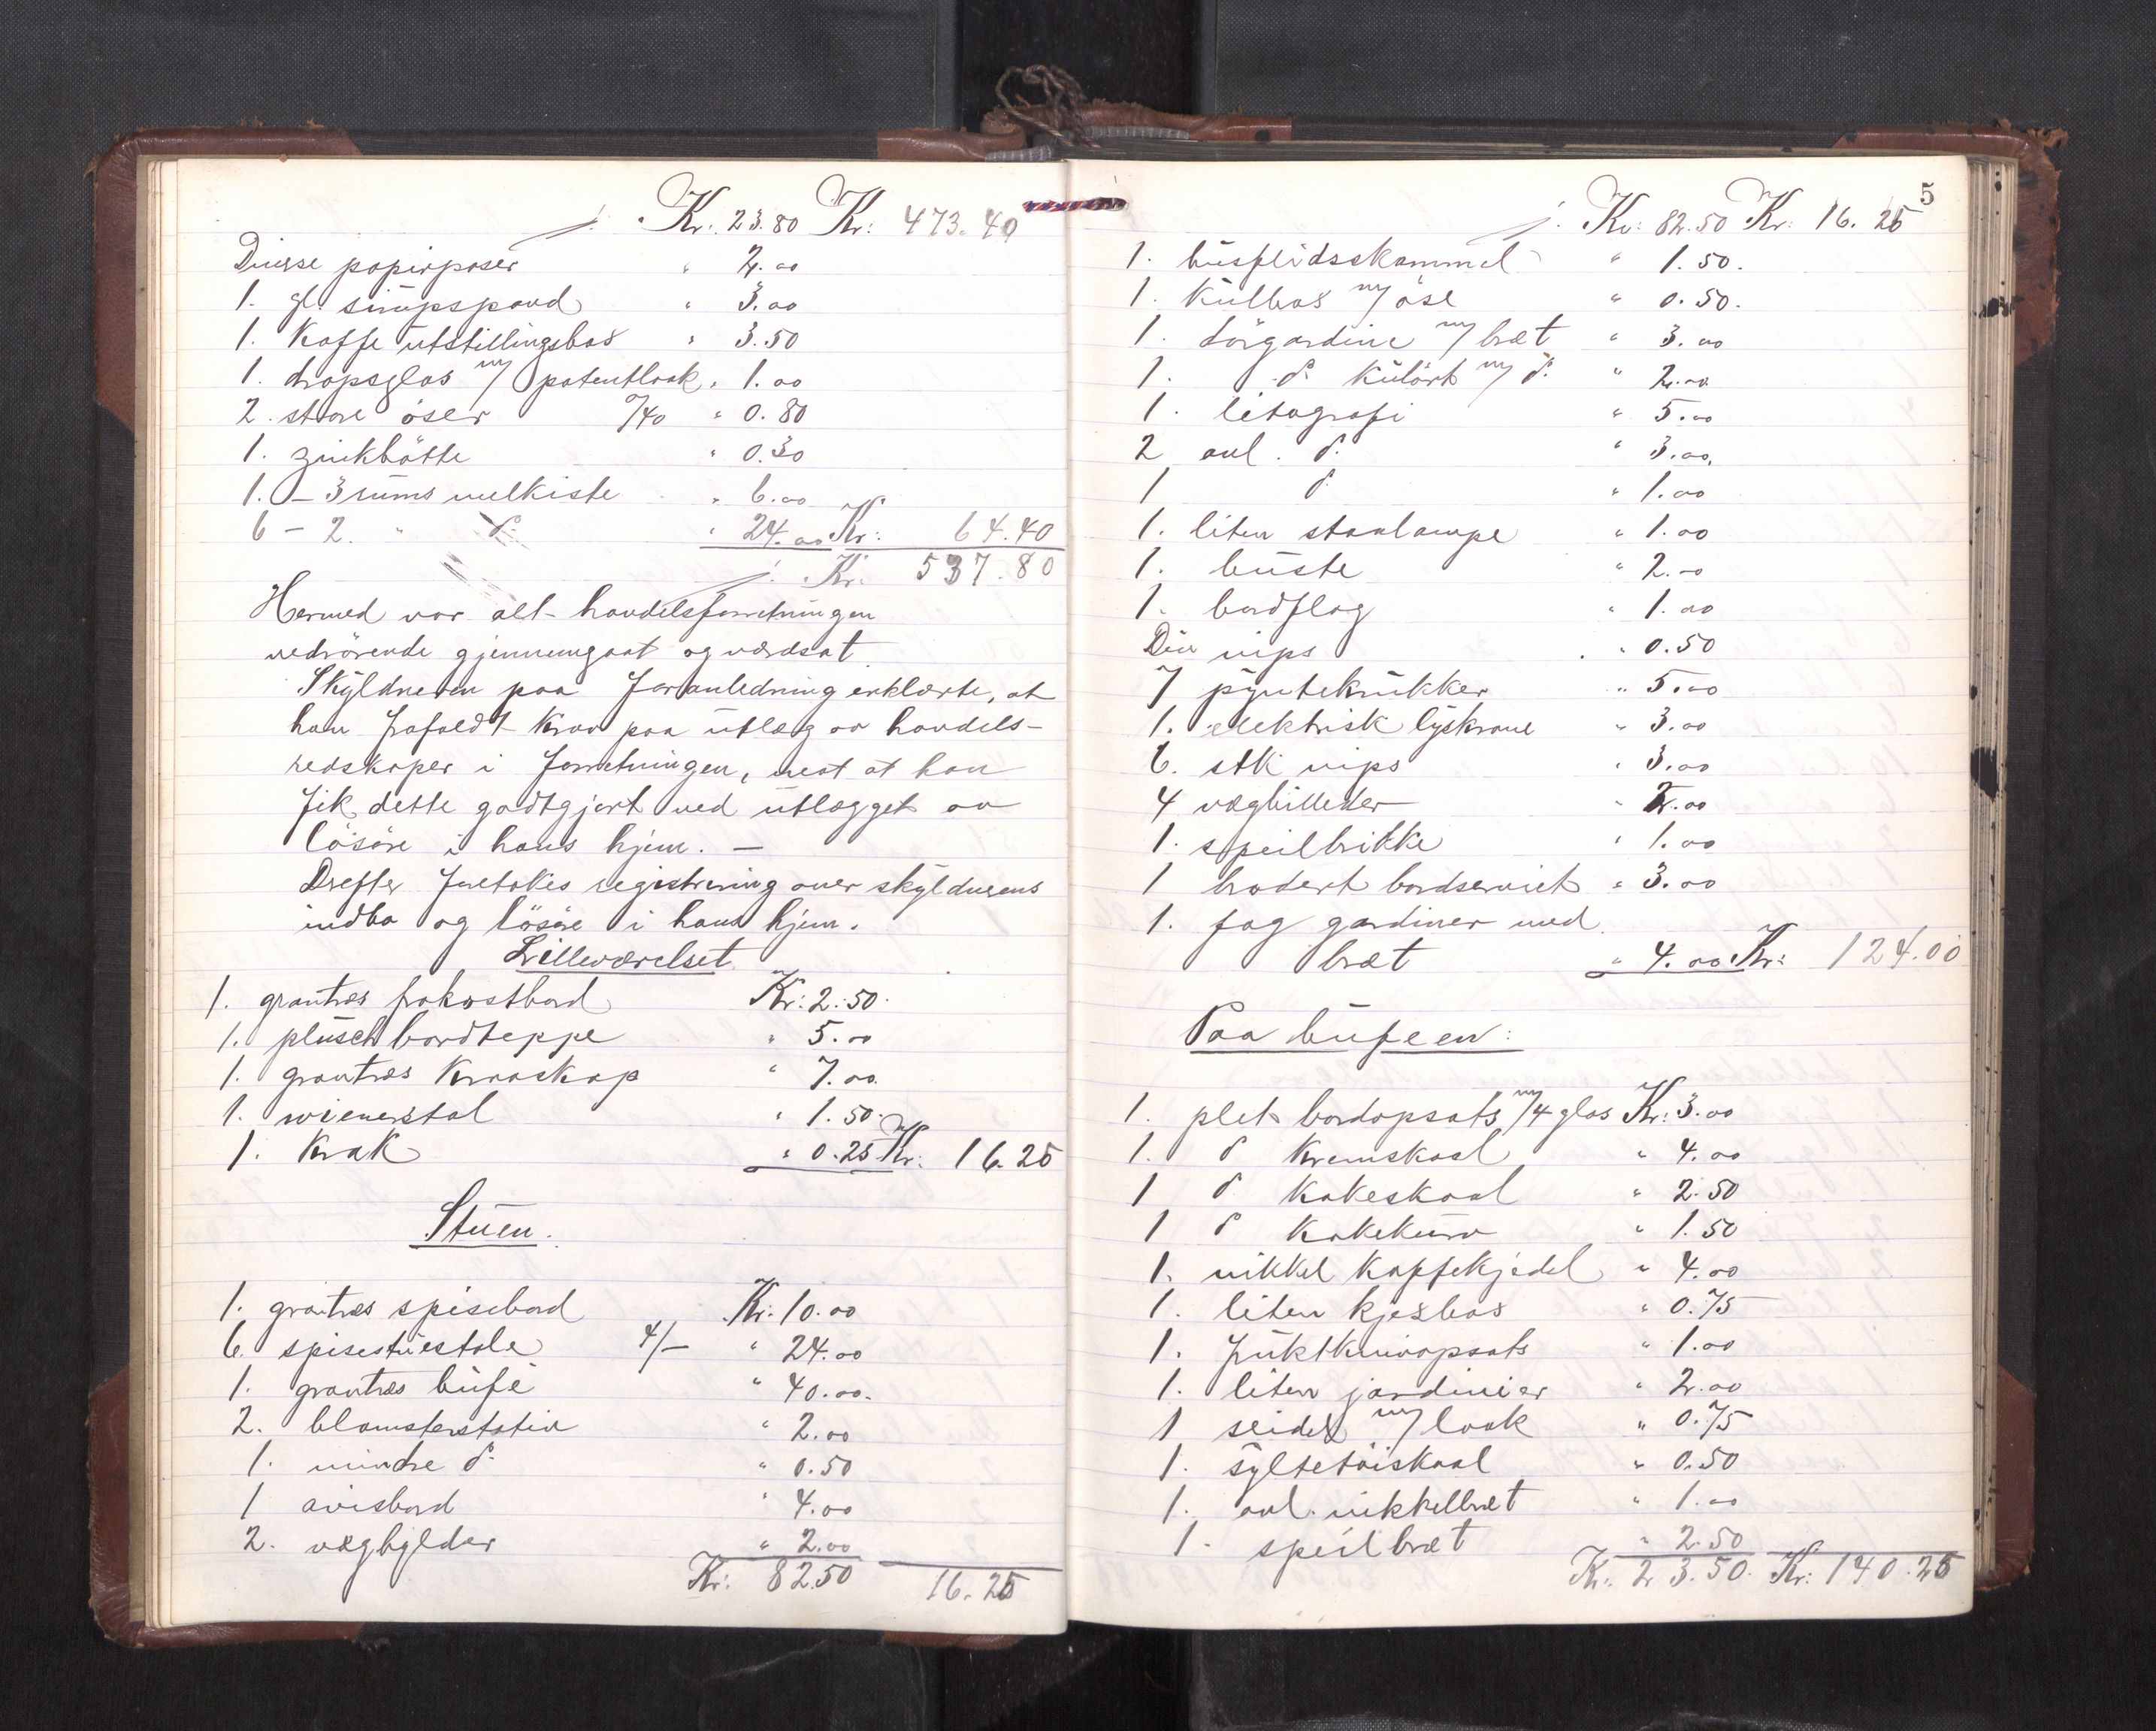 ./. Kr. 23.80 Kr: 473.40
Diverse papirposer " 2.00
1. gl. sirupspand " 3.00
1. Kaffe utstillingsbas " 3.50
1. dropsglas m/ patentlaak " 1.00
2. store öser %40 " 0.80
1. zinkbötte " 0.30
1. – 3 rums melkiste " 6.00
6 – 2. " d. " 24.00 Kr: 64.40
./. Kr. 537.80
Hermed var alt handelsforretningen
vedrörende gjennemgaat og værdsat.
Skyldneren paa foranledning erklærte, at
han frafaldt Krav paa utlæg av handels-
redskaper i forretningen, mot at han
fik dette godtgjort ved utlægget av
lösöre i hans hjem. –
Drefter foretokes registrering over skyldnerens
indbo og lösöre i hans hjem.
Lilleværelset
1. grantræs frokostbord Kr: 2.50.
1. plüsch bordteppe " 5.00
1. grantræs Kroaskap " 7.00.
1. wienerstol " 1.50.
1. Krak " 0.25 Kr: 16.25
Stuen.
1. grantræs spisebord Kr. 10.00
6. spisestuestole 4/– " 24.00
1. grantræs büfé " 40.00.
2. blomsterstativ " 2.00
1. mindre d. " 0.50
1 avisbord " 4.00
2. væghylder " 2.00
Kr: 82.50 16.25
5
./. Kr: 82.50 Kr: 16.25
1. husflidsskammel " 1.50.
1. Kulbas m/ öse " 0.50.
1. dörgardine m/ bræt " 3.00
1. d. Kulört m/ d. " 2.00
1. litografi " 5.00
2 anl. d. " 3.00.
1 d. " 1.00
1. liten staalampe " 1.00
1. büste " 2.00
1. bordflag " 1.00
Div nips " 0.50
7 pyntekrukker " 5.00
1. elektrisk lyskrone " 3.00
6. stk nips " 3.00
4 vægbilleder " 2.00
1. speilbrikke " 1.00
1 brodert bordserviet " 3.00
1. fag gardiner med
bræt " 4.00 Kr: 124.00
Paa büfeen:
1. plet bordopsats m/4 glas Kr: 3.00
1. d Kremskaal " 4.00
1 d Kakeskaal " 2.50
1 d Kakekurv " 1.50
1. nikkel Kaffekjedel " 4.00
1. liten kjeksbas " 0.75
1. fruktknivopsats " 1.00
1. liten jardinier " 2.00
1 seidel m/ laak " 0.75
1. syltetöiskaal " 0.50
1. avl. nikkelbræt " 1.00
1. speilbræt " 2.50
Kr. 23.50. Kr: 140.25